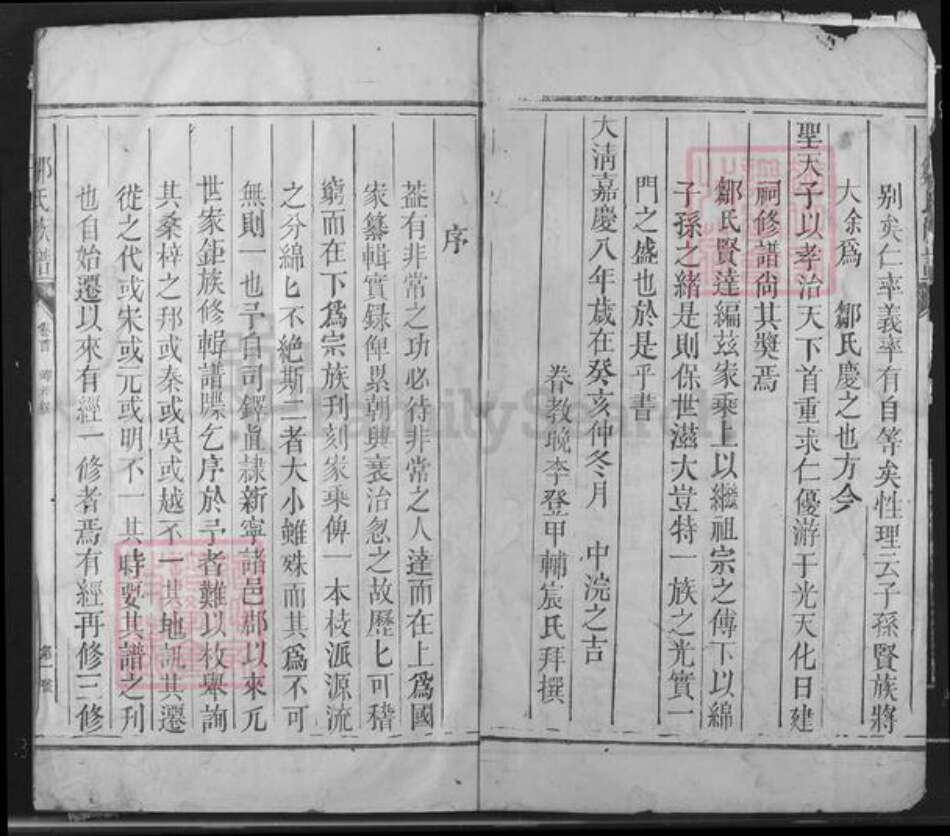 别矣仁率義率有自等矣性理云子孫賢族將
大余爲　鄒氏慶之也方今
聖天子以孝治天下首重求仁優游于光天化日建
祠修譜尙其奬焉
鄒氏賢達編玆家乘上以繼祖宗之傳下以綿
子孫之緒是則保世滋大豈特一族之光實一
門之盛也於是乎書
大淸嘉慶八年歲在癸亥仲冬月　中浣之吉
眷教晚李登甲輔宸氏拜撰
序
葢有非常之功必待非常之人達而在上爲國
家纂輯實録俾累朝興衰治忽之故歷匕可稽
窮而在下爲宗族刋刻家乘傳一本枝派源流
之分綿匕不絶斯二者大小雖殊而其爲不可
無則一也予自司鐸眞隷新寧諸邑郡以來兀
世家鉅族修輯譜牒乞序於予者難以枚舉詢
其桑梓之邦或秦或吳或越不一其地訊其遷
從之代或宋或元或明不一其時要其譜之刋
也自始遷以來有經一修者焉有經再修三修
鄒氏族譜
卷首
第一號
FamilySearch